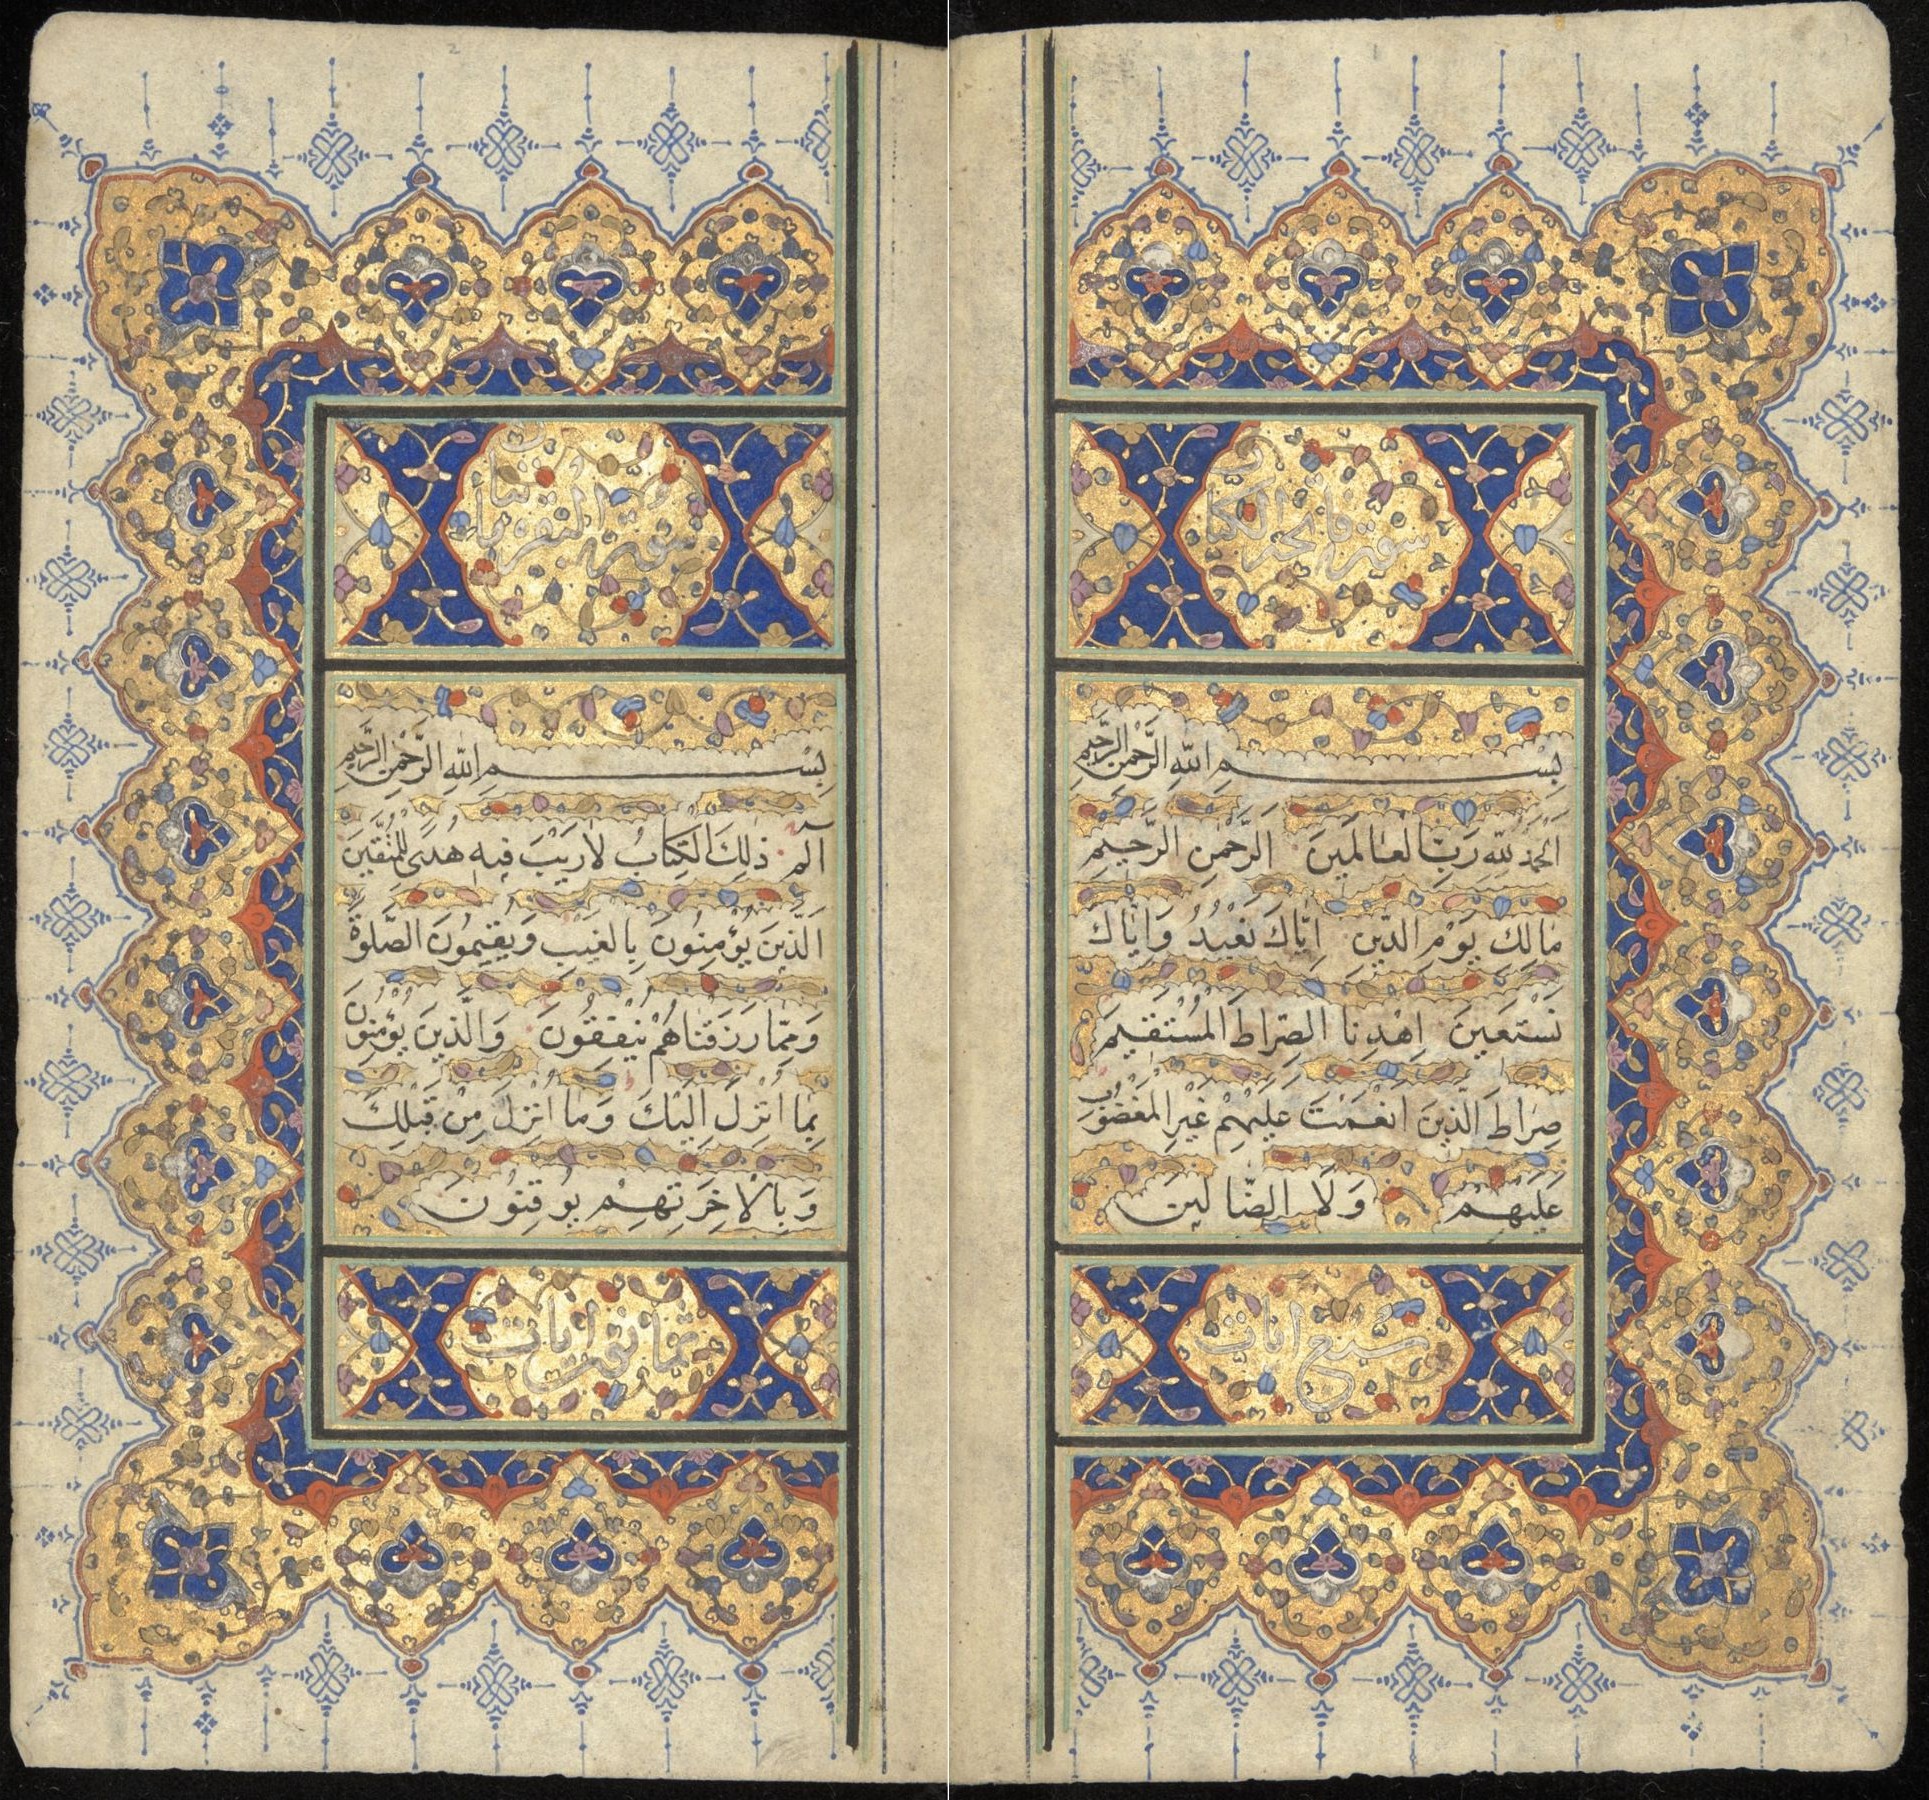 سورة فاتحة الكتاب
بِسْمِ اللّٰهِ الرَّحْمٰنِ الرَّحِيمِ
اَلْحَمْدُ لِلّٰهِ رَبِّ الْعَالَمِينَ اَلرَّحْمٰنِ الرَّحِيمِ
مَالِكِ يَوْمِ الدِّينِ اِيَّاكَ نَعْبُدُ وَاِيَّاكَ
نَسْتَعِينَ اِهْدِنَا الصِّرَاطَ الْمُسْتَقِيمَ
صِرَاطَ الَّذِينَ اَنْعَمْتَ عَلَيْهِمْ غَيْرِ الْمَغْضُوبِ
عَلَيْهِمْ وَلَا الضَّالِّينَ
سبع ايات
سورة البقره
بِسْمِ اللّٰهِ الرَّحْمٰنِ الرَّحِيمِ
الٓمٓ ذٰلِكَ الْكِتَابُ لَا رَيْبَ فِيهِ هُدًى لِلْمُتَّقِينَ
اَلَّذِينَ يُؤْمِنُونَ بِالْغَيْبِ وَيُقِيمُونَ الصَّلٰوةَ
وَمِمَّا رَزَقْنَاهُمْ يُنْفِقُونَ وَالَّذِينَ يُؤْمِنُونَ
بِمَا اُنْزِلَ اِلَيْكَ وَمَا اُنْزِلَ مِنْ قَبْلِكَ
وَبِالْاٰخِرَتِهِمْ يُوقِنُونَ
ايات